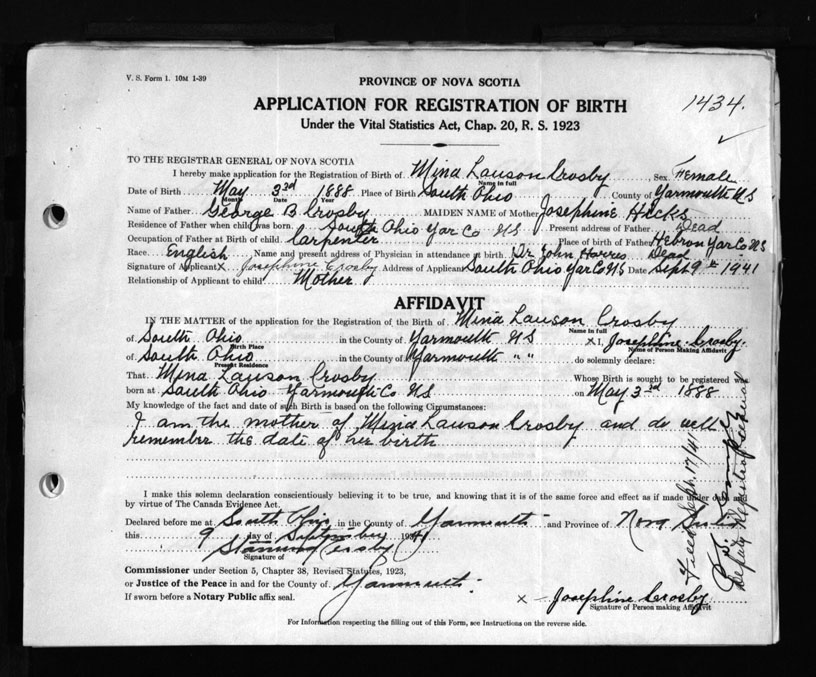 V. S. Form 1. 10M 1-39
PROVINCE OF NOVA SCOTIA
APPLICATION FOR REGISTRATION OF BIRTH
1434.
Under the Vital Statistics Act, Chap. 20, R. S. 1923
TO THE REGISTRAR GENERAL OF NOVA SCOTIA
I hereby make application for the Registration of Birth of Mina Lauson Crosby, Sex Female
Name in full
Date of Birth May 3rd 1888 Place of Birth South Ohio County of Yarmouth NS
Month Date Year
Name of Father George B Crosby MAIDEN NAME of Mother Josephine Hicks
Residence of Father when child was born South Ohio Yar Co NS Present address of Father Dead
Occupation of Father at Birth of child Carpenter Place of birth of Father Hebron Yar Co NS
Race English Name and present address of Physician in attendance at birth Dr John Harris Dead
Signature of Applicant X Josephine Crosby Address of Applicant South Ohio Yar Co NS Date Sept 9th 1941
Relationship of Applicant to child Mother
AFFIDAVIT
IN THE MATTER of the application for the Registration of the Birth of Mina Lauson Crosby
Name in full
of South Ohio in the County of Yarmouth NS X I, Josephine Crosby.
Birth Place Name of Person Making Affidavit
of South Ohio in the County of Yarmouth " " do solemnly declare:
Present Residence
That Mina Lauson Crosby Whose Birth is sought to be registered was
born at South Ohio Yarmouth Co NS on May 3rd 1888
My knowledge of the fact and date of such Birth is based on the following Circumstances:
I am the mother of Mina Lauson Crosby and do well
remember the date of her birth
I make this solemn declaration conscientiously believing it to be true, and knowing that it is of the same force and effect as if made under oath and
by virtue of The Canada Evidence Act.
Declared before me at South Ohio in the County of Yarmouth and Province of Nova Scotia
this 9 day of September 1941
Crosby
Signature of
Commissioner under Section 5, Chapter 38, Revised Statutes, 1923,
or Justice of the Peace in and for the County of Yarmouth
If sworn before a Notary Public affix seal.
X Josephine Crosby
Signature of Person making Affidavit
For Information respecting the filling out of this Form, see Instructions on the reverse side.
Filed Sept. 17/41
Deputy Registrar General